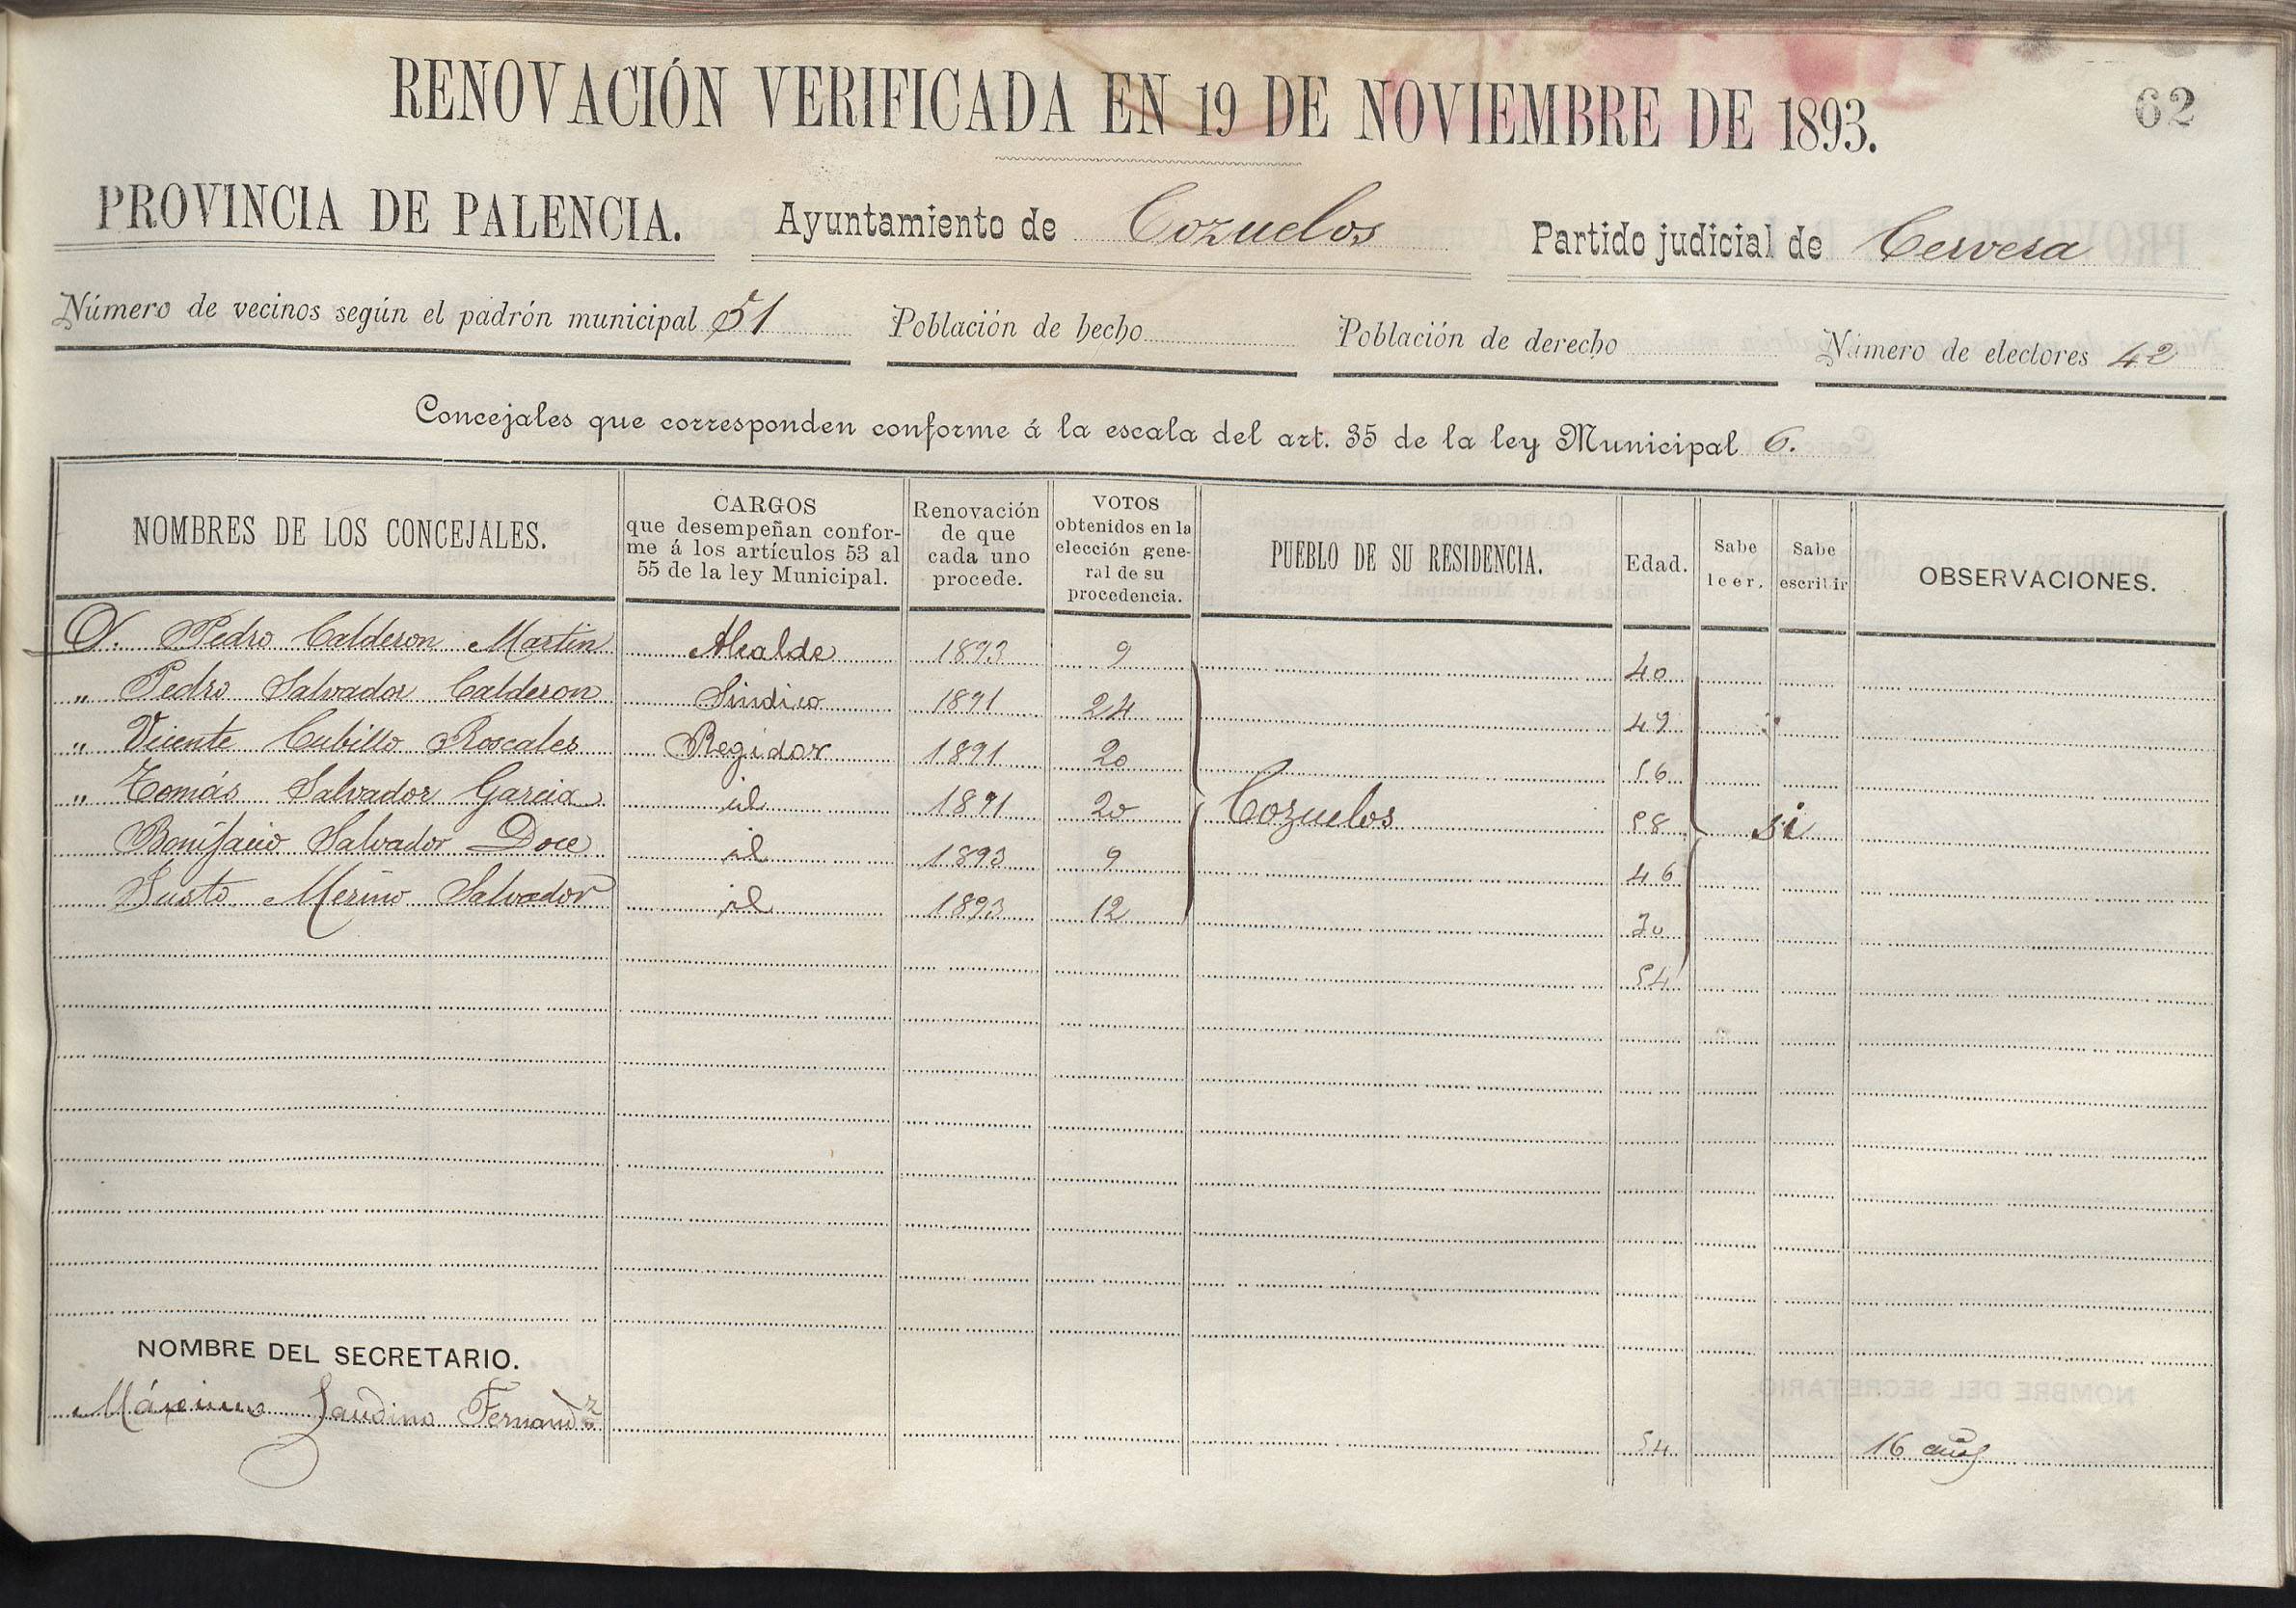 RENOVACIÓN VERIFICADA EN 19 DE NOVIEMBRE DE 1893.
62
PROVINCIA DE PALENCIA. Ayuntamiento de Cozuelos Partido judicial de Cervera
Número de vecinos según el padrón municipal 51 Población de hecho Población de derecho Número de electores 42
Concejales que corresponden conforme á la escala del art. 35 de la ley Municipal 6.
NOMBRES DE LOS CONCEJALES. CARGOS que desempeñan conforme á los artículos 53 al 55 de la ley Municipal. Renovación de que cada uno procede. VOTOS obtenidos en la elección general de su procedencia. PUEBLO DE SU RESIDENCIA. Edad. Sabe leer. Sabe escribir OBSERVACIONES.
D. Pedro Calderon Martin Alcalde 1893 9 40
" Pedro Salvador Calderon Sindico 1891 24 49
" Vicente Cubillo Roscales Regidor 1891 20 56
" Tomás Salvador Garcia id 1891 20 Cozuelos 58 si
Bonifacio Salvador Doce id 1893 9 46
Justo Merino Salvador id 1893 12 30
54
NOMBRE DEL SECRETARIO.
Máximo Fernandz 54 16 años